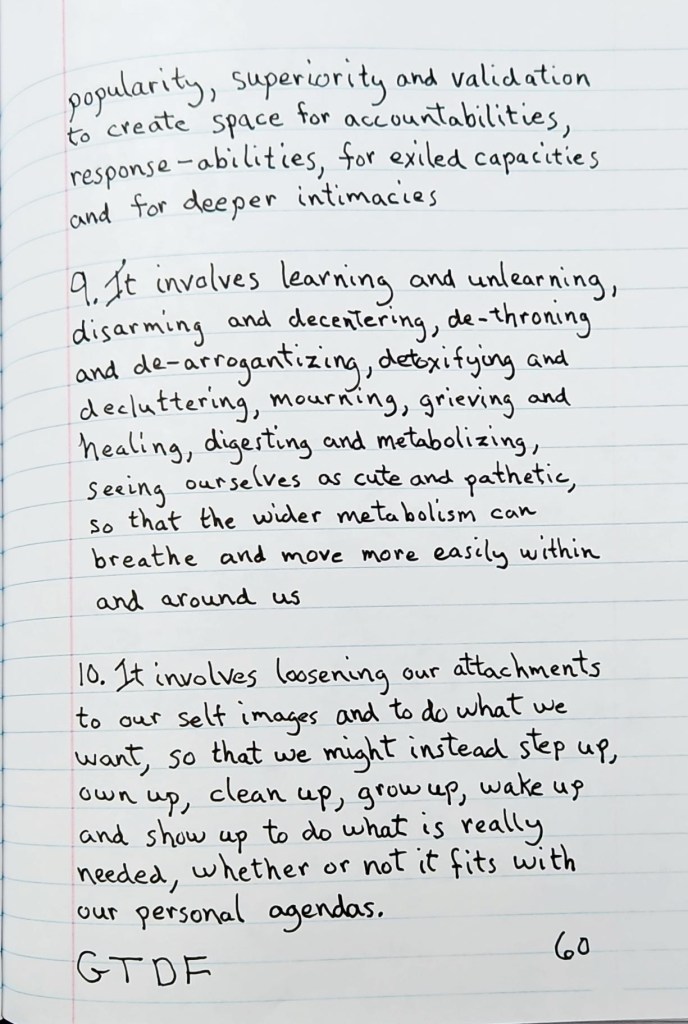 popularity, superiority and validation
to create space for accountabilities,
response-abilities, for exiled capacities
and for deeper intimacies
9. It involves learning and unlearning,
disarming and decentering, de-throning
and de-arrogantizing, detoxifying and
decluttering, mourning, grieving and
healing, digesting and metabolizing,
seeing ourselves as cute and pathetic,
so that the wider metabolism can
breathe and move more easily within
and around us
10. It involves loosening our attachments
to our self images and to do what we
want, so that we might instead step up,
own up, clean up, grow up, wake up
and show up to do what is really
needed, whether or not it fits with
our personal agendas.
GTDF
60